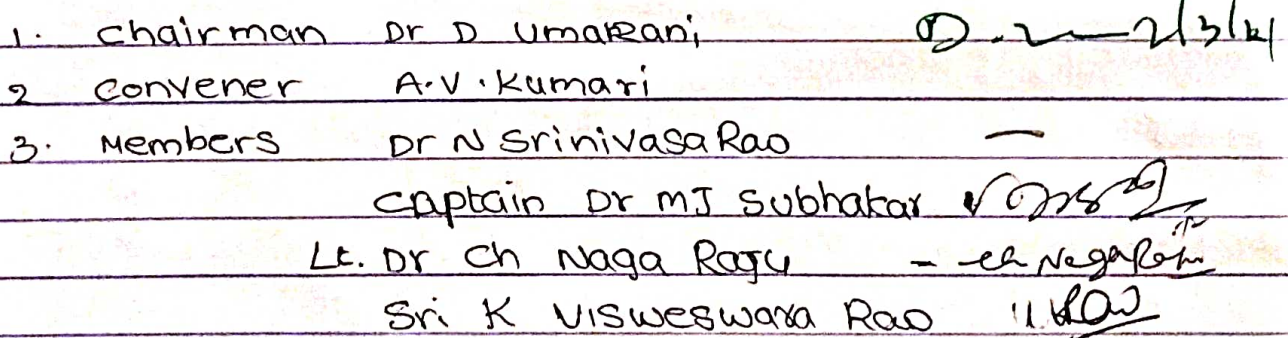 1. Chairman Dr D Umarani 2/3/21
2 Convener A.V. Kumari
3. Members Dr N Srinivasa Rao —
Captain Dr MJ Subhakar
Lt. Dr Ch Naga Raju - Ch NagaRaju
Sri K Visweswara Rao Rao